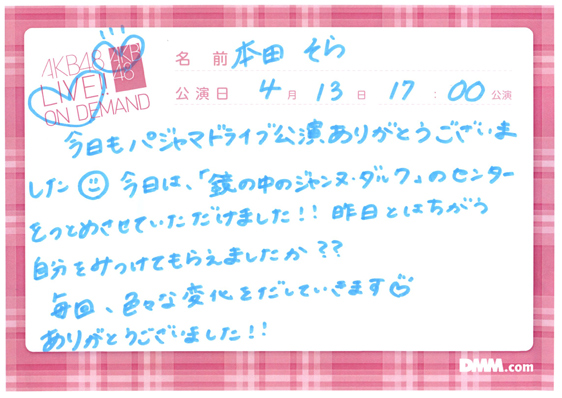 AKB48
LIVE!!
ON DEMAND
AKB
48
名 前 本田 そら
公演日 4月 13日 17:00 公演
今日もパジャマドライブ公演ありがとうございま
した 今日は、「鏡の中のジャンヌ・ダルク」のセンター
をつとめさせていただけました!! 昨日とはちがう
自分をみつけてもらえましたか??
毎回、色々な変化をだしていきます
ありがとうございました!!
DMM.com